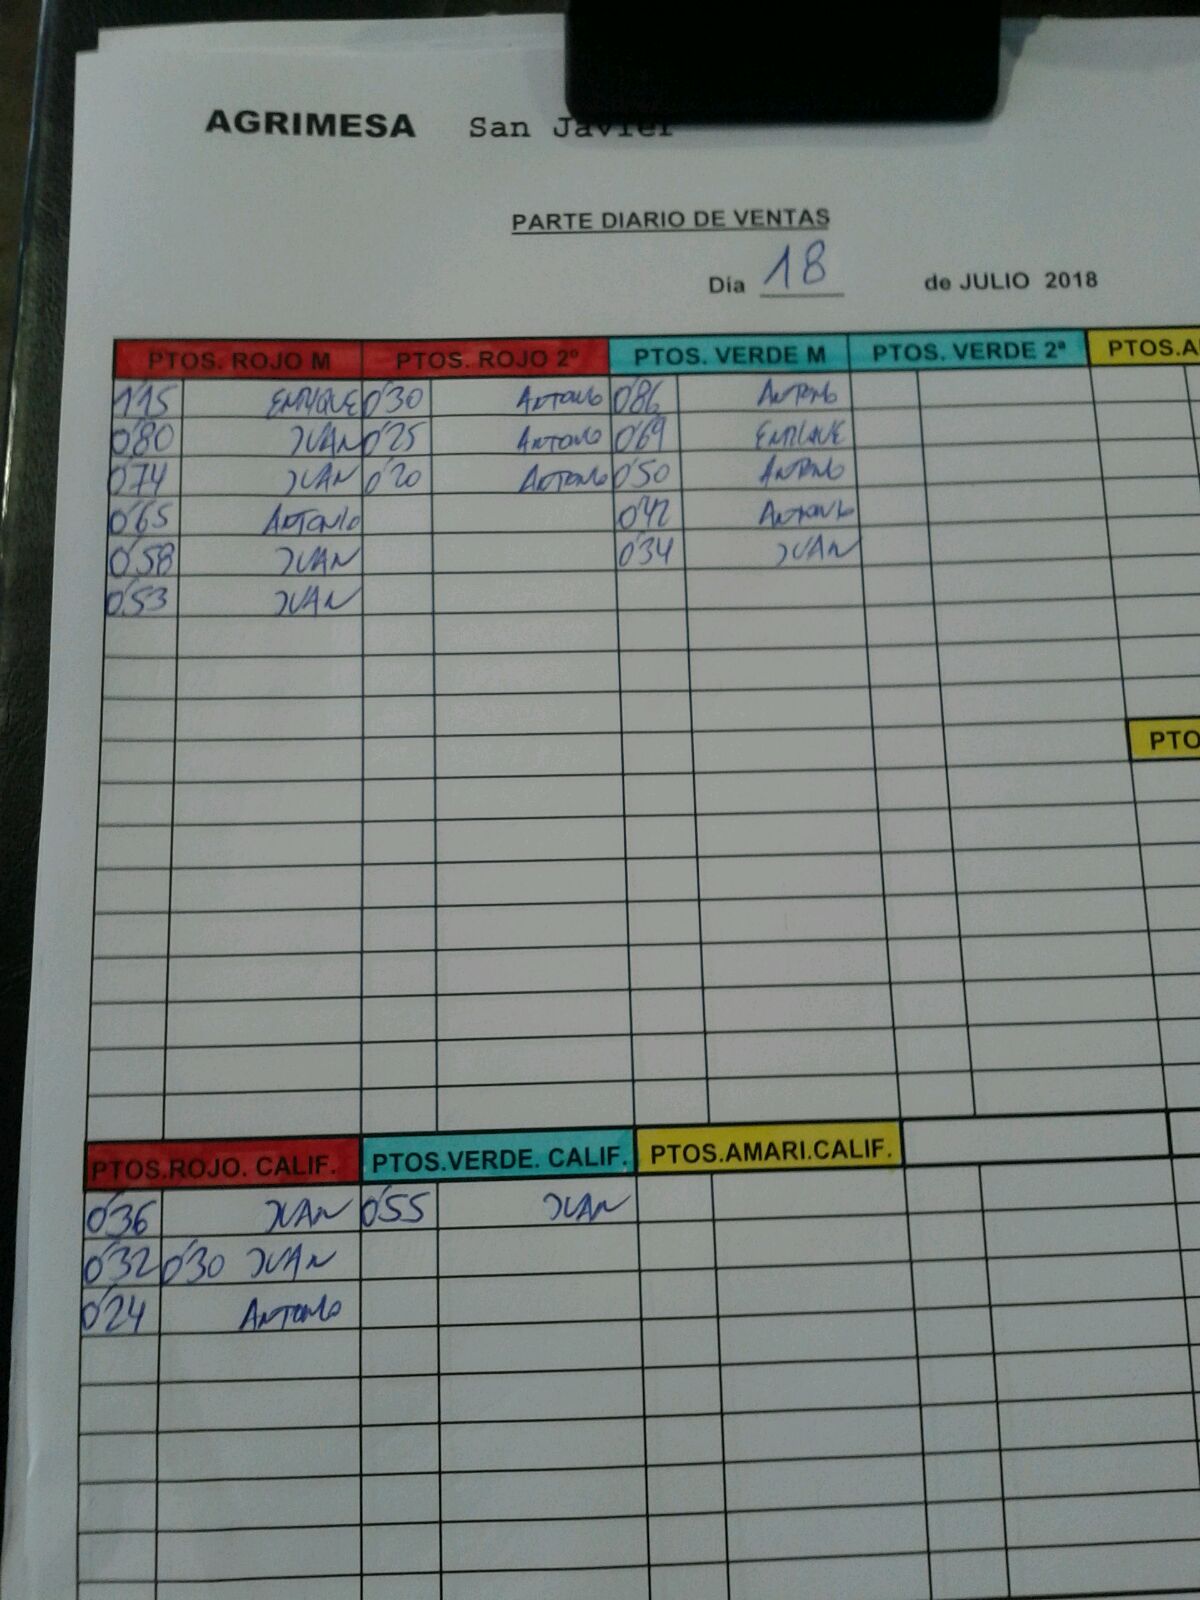 AGRIMESA San Javier
PARTE DIARIO DE VENTAS
Día 18 de JULIO 2018
PTOS. ROJO M PTOS. ROJO 2º PTOS. VERDE M PTOS. VERDE 2ª PTOS.A
1'15 ENRIQUE 0'30 ANTONIO 0'86 ANTONIO
0'80 JUAN 0'25 ANTONIO 0'69 ENRIQUE
0'74 JUAN 0'20 ANTONIO 0'50 ANTONIO
0'65 ANTONIO 0'42 ANTONIO
0'58 JUAN 0'34 JUAN
0'53 JUAN
PTO
PTOS.ROJO. CALIF. PTOS.VERDE. CALIF. PTOS.AMARI.CALIF.
0'36 JUAN 0'55 JUAN
0'32 0'30 JUAN
0'24 ANTONIO